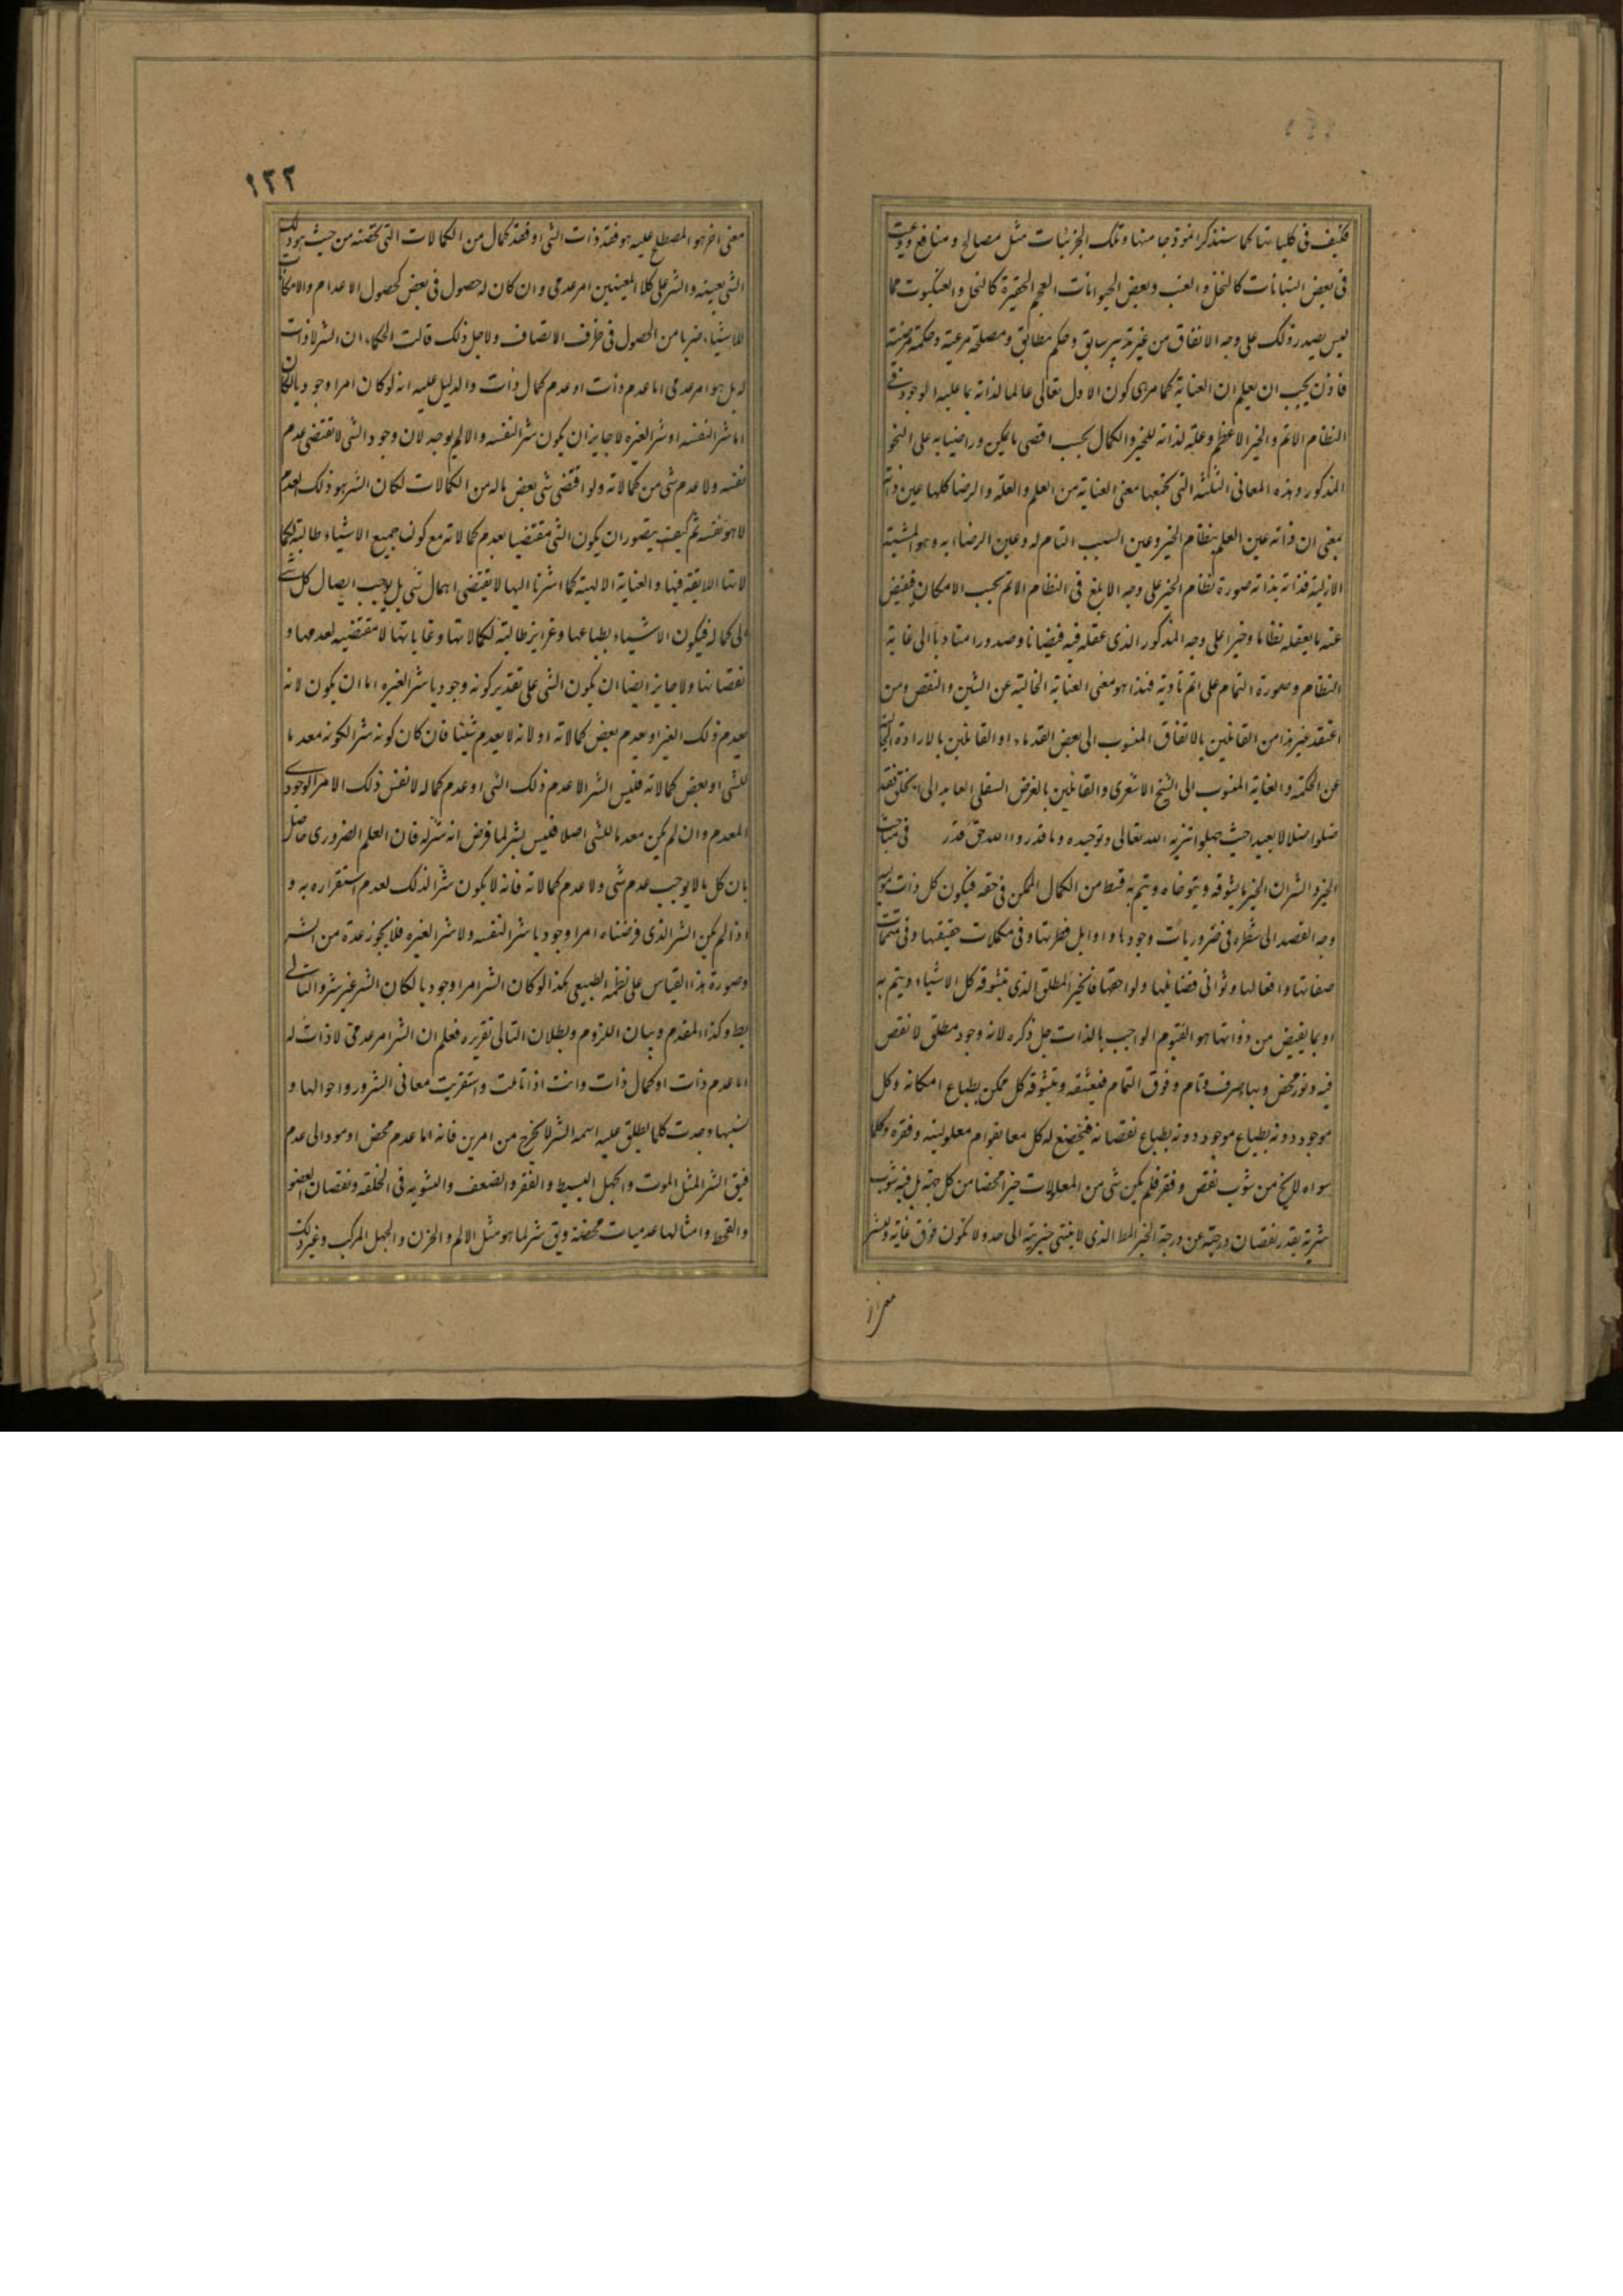 فكيف فى كلياتها كما سنذكر انموذجا منها وتلك الجزئيات مثل مصالح ومنافع
فى بعض النباتات كالنخل والعنب وبعض الحيوانات العجم الحقيرة كالنحل والعنكبوت مما
ليس يصدر ذلك على وجه الاتفاق من غير تدبير سابق وحكم مطابق ومصلحة مرعية وحكمة مرضية
فاذن يجب ان يعلم ان العناية كما مر هى كون الاول تعالى عالما لذاته بما عليه الوجود فى
النظام الاتم والخير الاعظم وعلة لذاته للخير والكمال بحسب اقصى ما يمكن وراضيا به على النحو
المذكور وهذه المعانى الثلثة التى تجمعها معنى العناية من العلم والعلة والرضا كلها عين ذاته
بمعنى ان ذاته عين العلم بنظام الخير وعين السبب التام له وعين الرضاء به وهو المشية
الازلية فذاته بذاته صورة نظام الخير على وجه الابلغ فى النظام الاتم بحسب الامكان فيفيض
عنه ما يعقله نظاما وخيرا على وجه المذكور الذى عقله فيه فيضانا وصدورا متاديا الى غاية
النظام وصورة التمام على اتم تادية فهذا هو معنى العناية الخالية عن الشين والنقص ومن
اعتقد غير هذا من القائلين بالاتفاق المنسوب الى بعض القدماء او القائلين بالارادة الخالية
عن الحكمة والعناية المنسوب الى الشيخ الاشعرى والقائلين بالغرض السفلى العايد الى الخلق فقد
ضلوا ضلالا بعيدا حيث جهلوا تنزيه الله تعالى وتوحيده وما قدروا الله حق قدره فى مباحث
الخير والشر ان الخير ما يتشوقه ويتوخاه ويتم به قسط من الكمال الممكن فى حقه فيكون كل ذات
وجه القصد الى شطره فى ضروريات وجودها واوايل فطرتها وفى مكملات حقيقتها وفى متممات
صفاتها وافعالها وثوانى فضائلها ولواحقها فالخير المطلق الذى يتشوقه كل الاشياء ويتم به
او بما يفيض من ذواتها هو القيوم الواجب بالذات جل ذكره لانه وجود مطلق لا نقص
فيه ونور محض وبهاء صرف وتام وفوق التمام فيعشقه ويتشوقه كل ممكن بطباع امكانه وكل
موجود دونه بطباع نقصانه فيخضع له كل معا بقوام معلوليته وفقره وكلما
سواه لا يخ من شوب نقص وفقر فلم يكن شى من المعلولات خيرا محضا من كل جهة بل فيه شوب
شرية بقدر نقصان درجته عن درجة الخير المط الذى لا ينتهى خيريته الى حد ولا تكون فوق غاية وللشر
معنى اخر
١٢٢
معنى اخر هو المصطلح عليه هو فقد ذات الشى او فقد كمال من الكمالات التى تخصه من حيث هو ذلك
الشى بعينه والشر على كلا المعنيين امر عدمى وان كان له حصول فى بعض كحصول الاعدام والامكانات
للاشياء ضربا من الحصول فى ظرف الاتصاف ولاجل ذلك قالت الحكماء ان الشر لا ذات
له بل هو امر عدمى اما عدم ذات او عدم كمال ذات والدليل عليه انه لو كان امرا وجوديا لكان
اما شرا لنفسه او شرا لغيره لا جايز ان يكون شرا لنفسه والا لم يوجد لان وجود الشى لا يقتضى عدم
نفسه ولا عدم شى من كمالاته ولو اقتضى شى بعض ماله من الكمالات لكان الشر هو ذلك العدم
لا هو نفسه ثم كيف يتصور ان يكون الشى مقتضيا لعدم كمالاته مع كون جميع الاشياء طالبة لكما
لاتها اللايقة فيها والعناية الالهية كما اشرنا اليها لا يقتضى اهمال شى بل يوجب ايصال كل شى
الى كماله فيكون الاشياء بطباعها وغرايزها طالبة لكمالاتها وغاياتها لا مقتضية لعدمها و
نقصانها ولا جايز ايضا ان يكون الشى على تقدير كونه وجوديا شرا لغيره اما ان يكون لانه
يعدم ذلك الغير او يعدم بعض كمالاته او لانه لا يعدم شيئا فان كان كونه شرا لكونه معدما
للشى او بعض كمالاته فليس الشر الا عدم ذلك الشى او عدم كماله لا نفس ذلك الامر الوجودى
المعدم وان لم يكن معدما للشى اصلا فليس بشر لما فرض انه شر له فان العلم الضرورى حاصل
بان كل ما لا يوجب عدم شى ولا عدم كمالاته فانه لا يكون شرا لذلك لعدم استقراره به و
اذا لم يكن الشر الذى فرضناه امرا وجوديا شرا لنفسه ولا شرا لغيره فلا يجوز عده من الشر
وصورة هذا القياس على نظمه الطبيعى هكذا لو كان الشر امرا وجوديا لكان الشر غير شر والتالى
بط وكذا المقدم وبيان اللزوم وبطلان التالى تقريره فعلم ان الشر امر عدمى لا ذات له
اما عدم ذات او كمال ذات وانت اذا تاملت واستقريت معانى الشرور واحوالها و
نسبها وجدت كلما يطلق عليه اسمه الشر لا يخرج من امرين فانه اما عدم محض او مود الى عدم
فيق الشر لمثل الموت والجهل البسيط والفقر والضعف والتشويه فى الخلقه ونقصان العضو
والقحط وامثالها عدميات محضة ويق شر لما هو مثل الالم والحزن والجهل المركب وغير ذلك